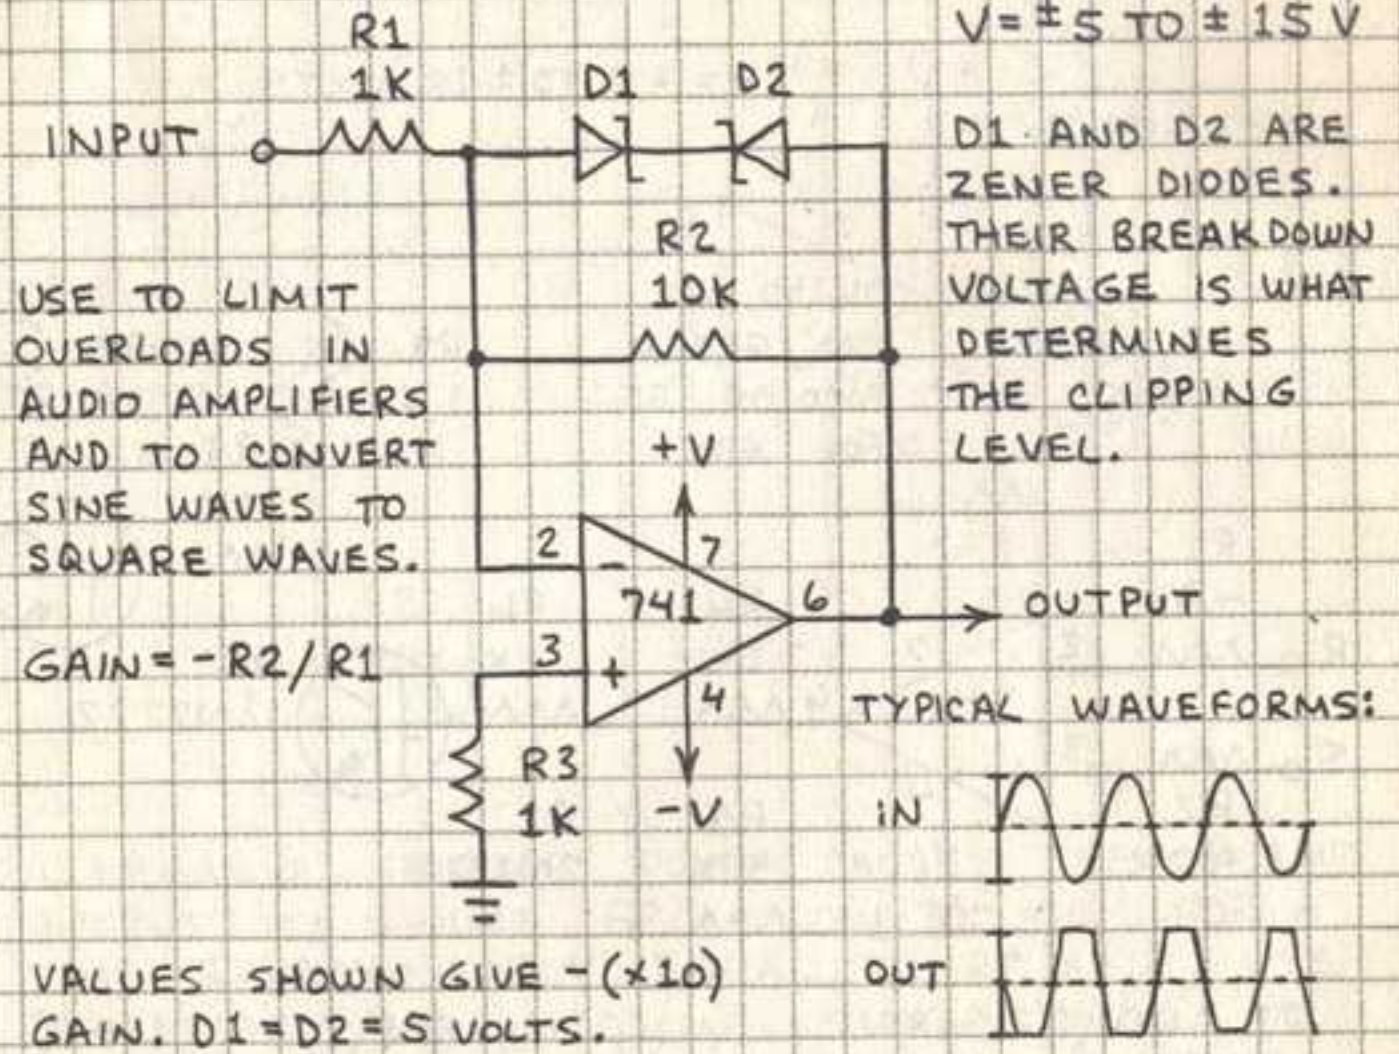 V = ±5 TO ± 15 V
R1
1K
D1
D2
INPUT
D1 AND D2 ARE
ZENER DIODES.
THEIR BREAKDOWN
VOLTAGE IS WHAT
DETERMINES
THE CLIPPING
LEVEL.
R2
10K
USE TO LIMIT
OVERLOADS IN
AUDIO AMPLIFIERS
AND TO CONVERT
SINE WAVES TO
SQUARE WAVES.
+V
2
-
7
741
6
OUTPUT
GAIN = -R2/R1
3
+
4
R3
1K
-V
TYPICAL WAVEFORMS:
iN
OUT
VALUES SHOWN GIVE -(x10)
GAIN. D1 = D2 = 5 VOLTS.